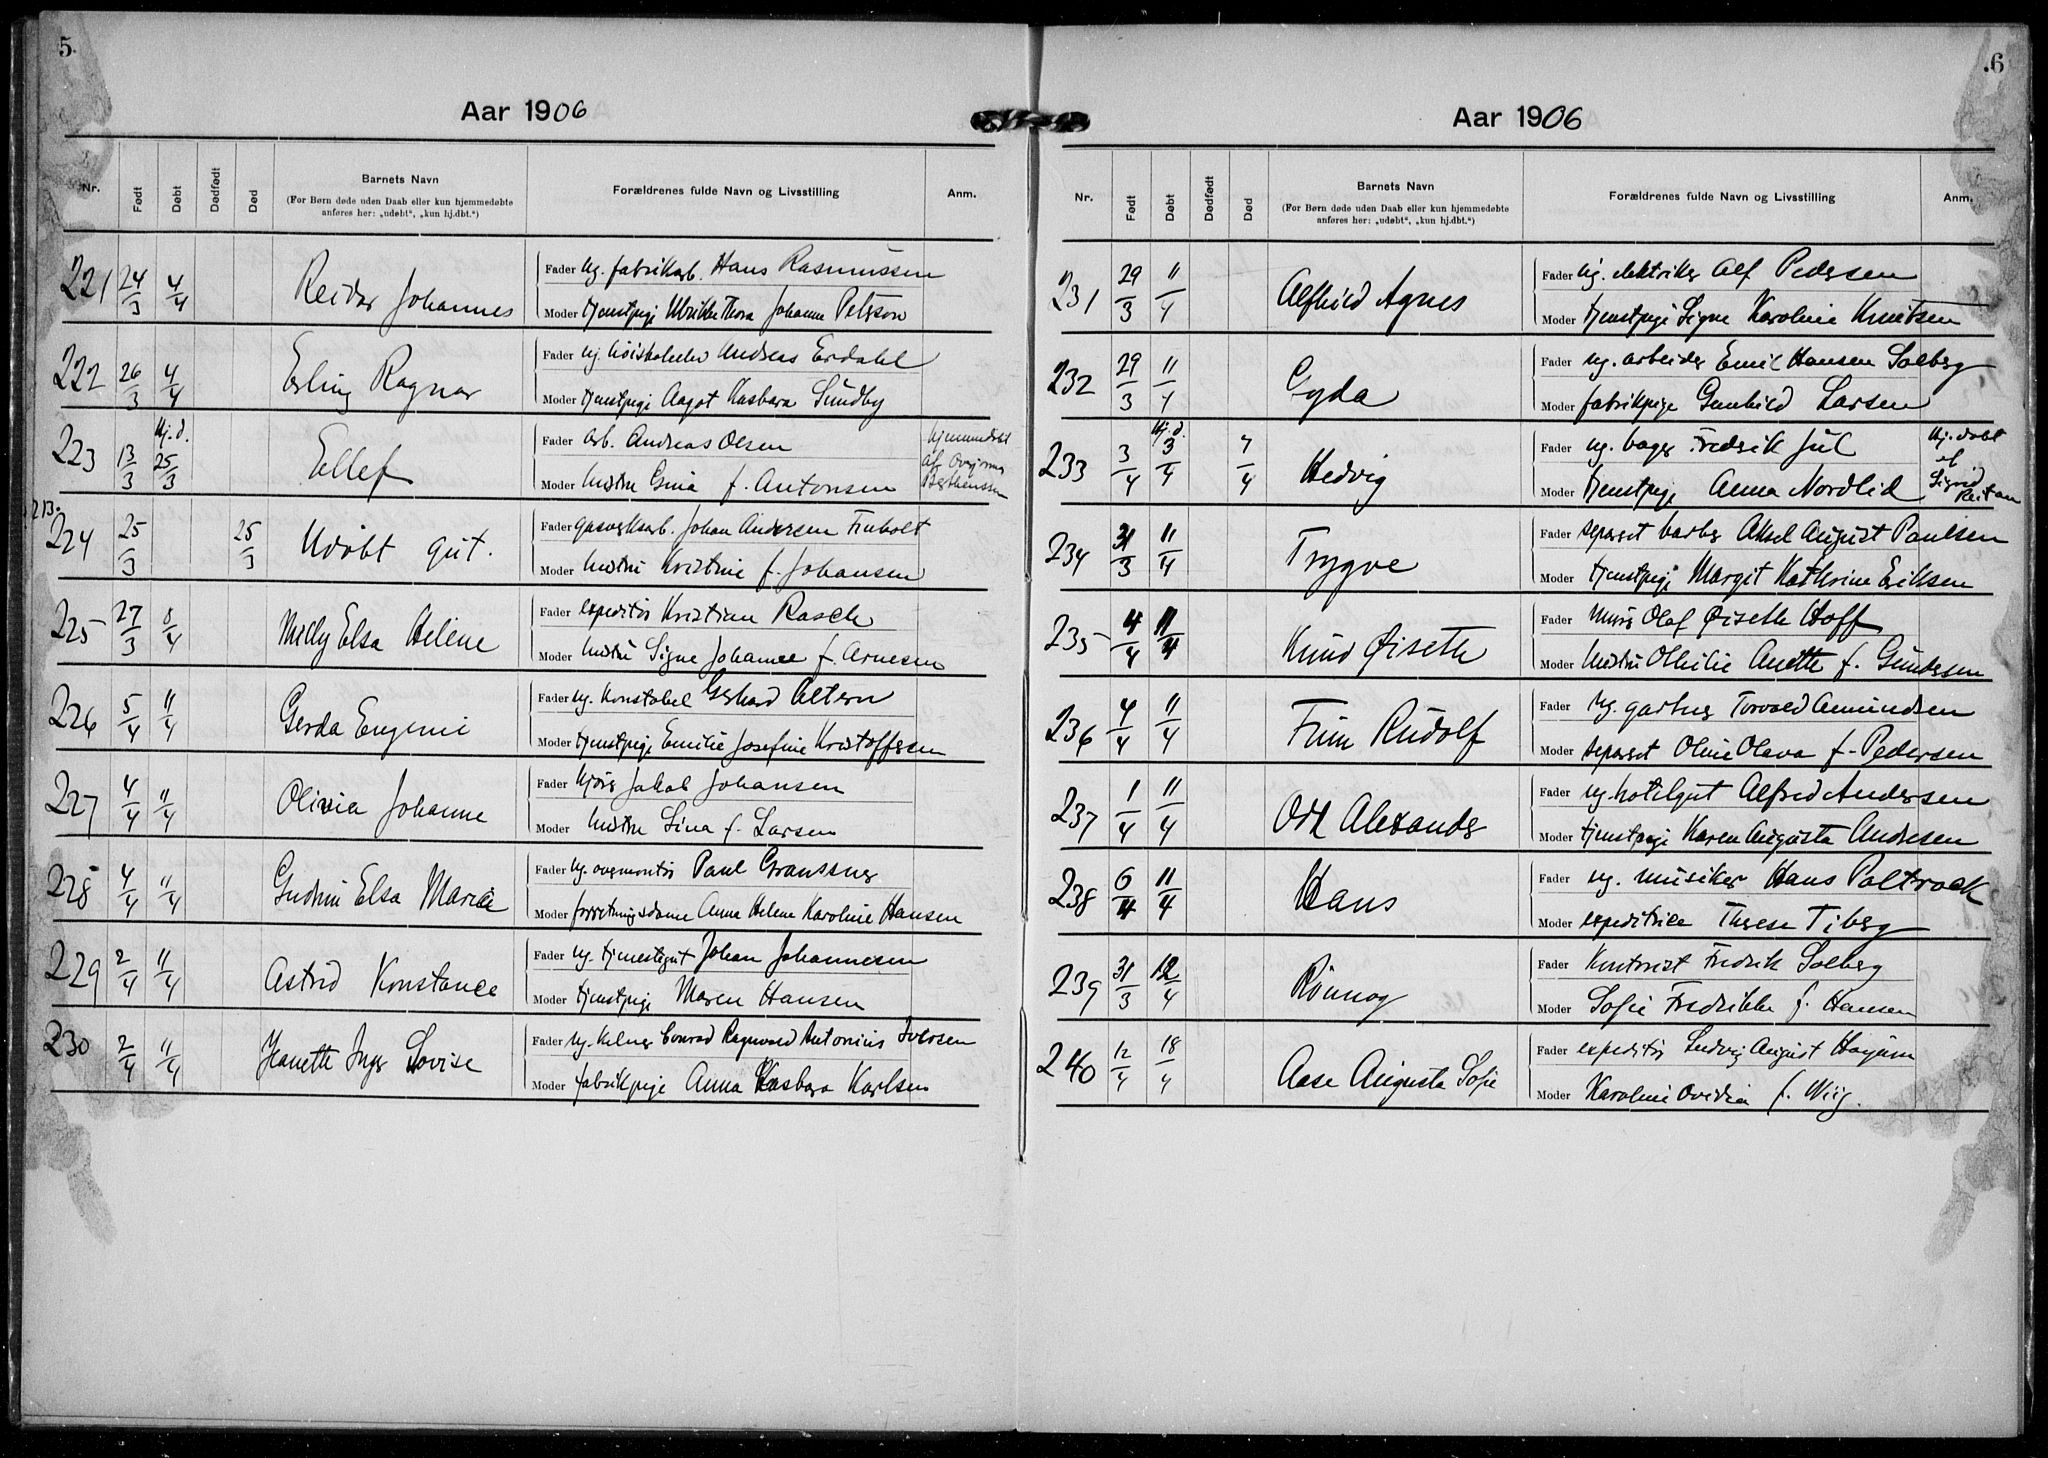 5.
Aar 1906
Nr. Født Døbt Dødfødt Død Barnets Navn Forældrenes fulde Navn og Livsstilling Anm.
(For Børn døde uden Daab eller kun hjemmedøbte
anføres her: „udøbt“, „kun hj.dbt.“)
Fader ug. fabrikarb. Hans Rasmussen
221 24/3 4/4 Reidar Johannes
Moder tjenstpige Ulrikke Thora Johanne Petersson
Fader ug. Andreas Erdahl
222 26/3 4/4 Erling Ragnar
Moder tjenstpige Aagot Kasbara Sundby
Fader arb. Andreas Olsen hjemmedøbt
223 13/3 Hj.d. 25/3 Ellef af
Moder hustru Gina f. Antonsen
213.
Fader gasverksarb. Johan Andersen Finholt
224 25/3 25/3 Udøbt gut.
Moder hustru Kristine f. Johansen
Fader expeditør Kristian Rasch
225 27/3 8/4 Milly Elsa Helene
Moder hustru Signe Johanne f. Arnesen
Fader ug. konstabel Gerhard Altern
226 5/4 11/4 Gerda Eugenie
Moder tjenstpige Emilie Josefine Kristoffersen
Fader kjører Jakob Johansen
227 4/4 11/4 Olivia Johanne
Moder hustru Lina f. Larsen
Fader ug. overmontør Paul Granssner
228 4/4 11/4 Gudrun Elsa Marie
Moder forretningsdame Anna Helene Karoline Hansen
Fader ug. tjenestegut Johan Johannesen
229 2/4 11/4 Astrid Konstance
Moder tjenstpige Maren Hansen
Fader ug. kelner Conrad Ragnvald Antonius Iversen
230 2/4 11/4 Jeanette Inger Lovise
Moder fabrikpige Anna Kasbara Karlsen
.6
Aar 1906
Nr. Født Døbt Dødfødt Død Barnets Navn Forældrenes fulde Navn og Livsstilling Anm.
(For Børn døde uden Daab eller kun hjemmedøbte
anføres her: „udøbt“, „kun hj.dbt.“)
Fader ug. elektriker Alf Pedersen
231 29/3 11/4 Alfhild Agnes
Moder tjenstpige Signe Karoline Knutsen
Fader ug. arbeider Emil Hansen Solberg
232 29/3 11/4 Gyda
Moder fabrikpige Gunhild Larsen
Fader ug. bager Fredrik Jul Hj. døbt
233 3/4 Hj.d. 3/4 7/4 Hedvig af
Moder tjenstpige Anna Nordlid Sigrid Reitan
Fader separert barber Aksel August Paulsen
234 31/3 11/4 Trygve
Moder tjenstpige Margit Kathrine Eriksen
Fader murer Olaf Øiseth Hoff
235 4/4 11/4 Knud Øiseth
Moder hustru Othilie Anette f. Gundersen
Fader ug. gartner Torvald Amundsen
236 4/4 11/4 Finn Rudolf
Moder separert Oline Olava f. Pedersen
Fader ug. hotelgut Alfred Andersen
237 1/4 11/4 Odd Alexander
Moder tjenstpige Karen Augusta Andresen
Fader ug. musiker Hans Poltrock
238 6/4 11/4 Hans
Moder expeditrice Therese Tiberg
Fader Kontorist Fredrik Solberg
239 31/3 12/4 Rønnog
Moder Sofie Fredrikke f. Hansen
Fader expeditør Ludvig August Hagum
240 12/4 18/4 Aase Augusta Sofie
Moder Karoline Ovidia f. Wiig.